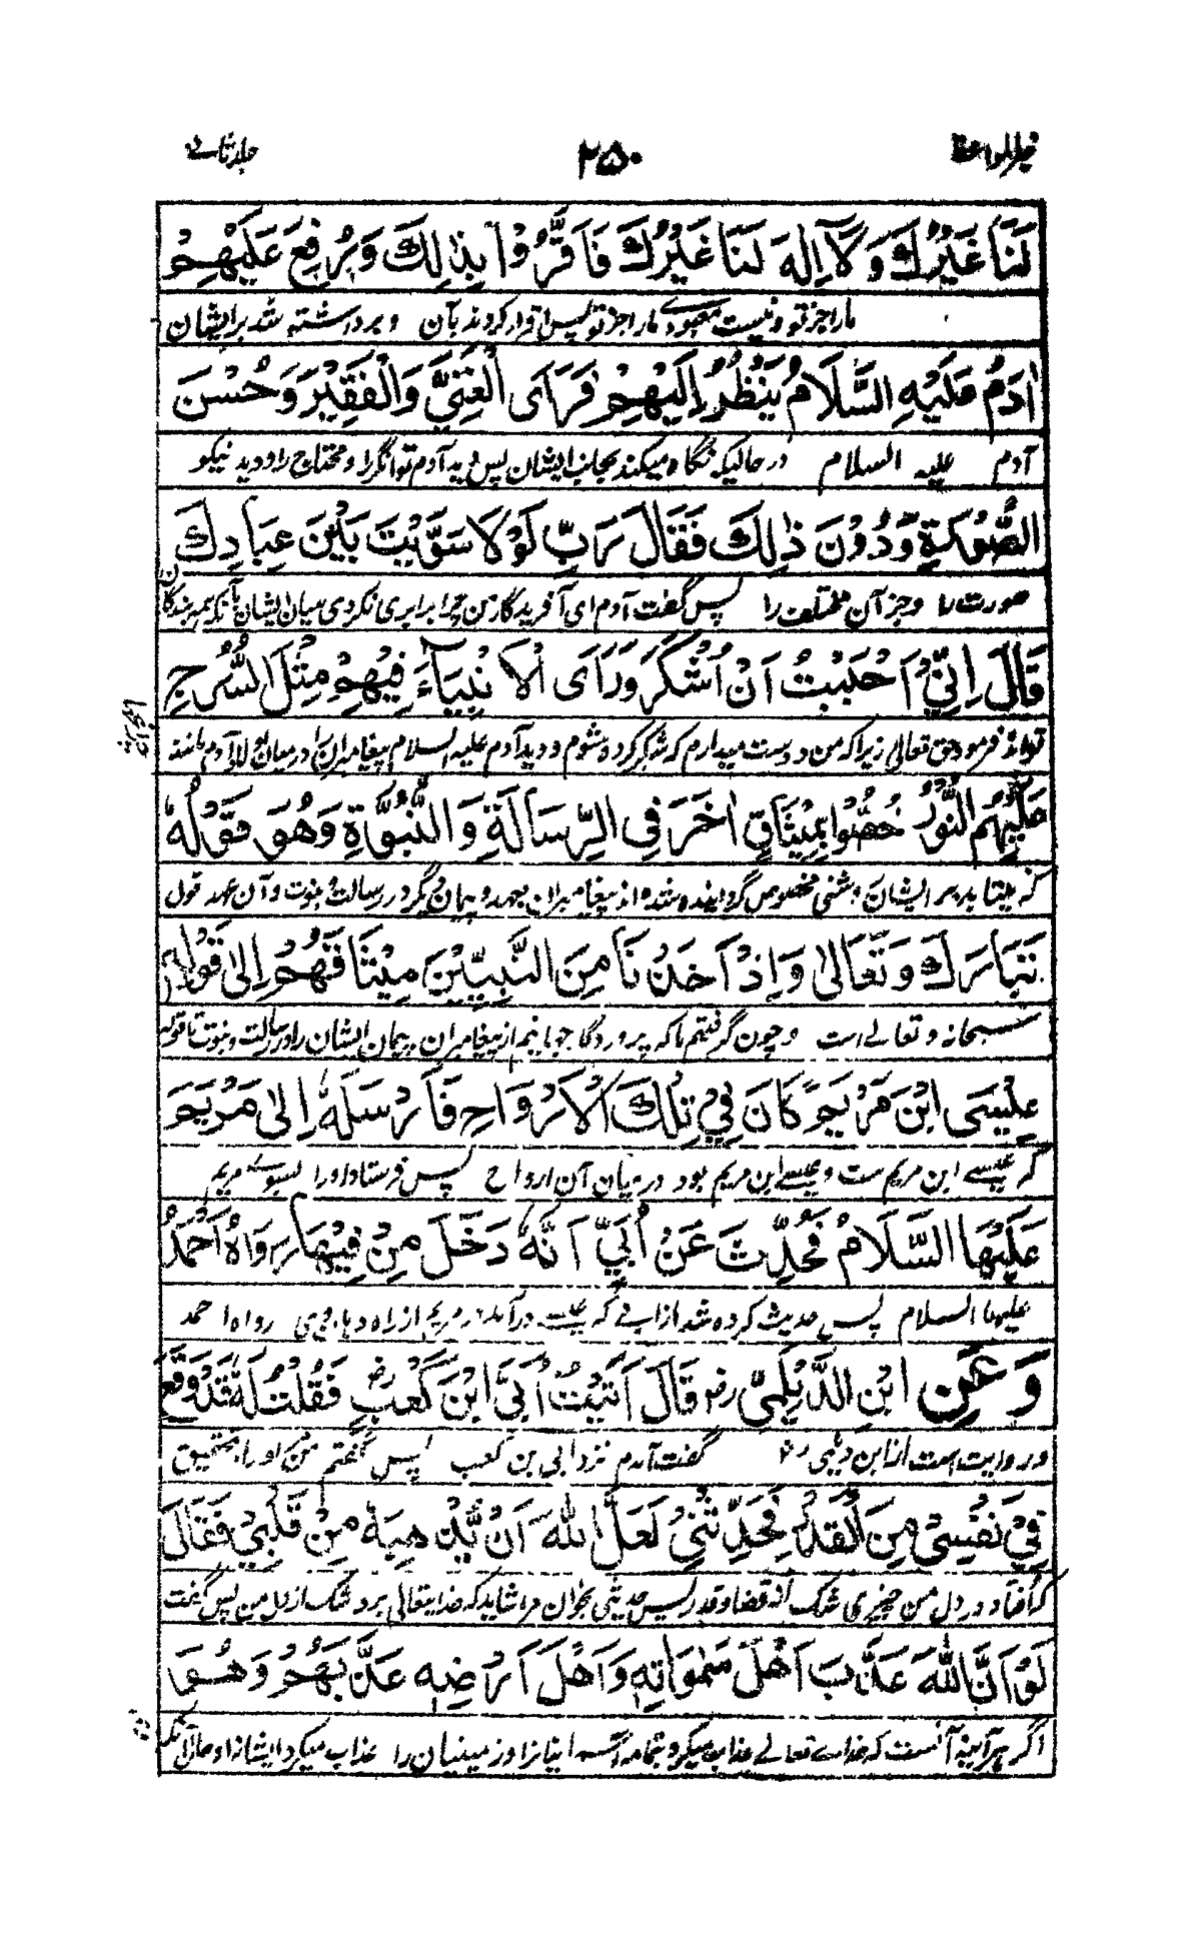 خیر المواعظ ۲۵۰ جلد ثانے
لَنَا غَيْرُكَ وَلَآ اِلٰهَ لَنَا غَيْرُكَ فَاَقَرُّوْا بِذٰلِكَ وَرُفِعَ عَلَيْهِمْ
مارا جز تو ونیست معبودے مارا جز تو پس اقرار کردند بآن وبرداشته شد بر ایشان
اٰدَمُ عَلَيْهِ السَّلَامُ يَنْظُرُ اِلَيْهِمْ فَرَاَى الْغَنِيَّ وَالْفَقِيْرَ وَحُسْنَ
آدم علیه السلام در حالیکه نگاه میکند بجانب ایشان پس دید آدم توانگر را و محتاج را و دید نیکو
الصُّوْرَةِ وَدُوْنَ ذٰلِكَ فَقَالَ رَبِّ لَوْلَا سَوَّيْتَ بَيْنَ عِبَادِكَ
صورت را وجز آن مختلف را پس گفت آدم ای آفریدگار من چرا برابری نکردی میان ایشان
قَالَ اِنِّيْ اَحْبَبْتُ اَنْ اُشْكَرَ وَرَاَى الْاَنْبِيَآءَ فِيْهِمْ مِثْلَ السُّرُجِ
فرمود حق تعالی زیرا که من دوست میدارم که شکر کرده شوم و دید آدم علیه السلام پیغامبران را در میان اولاد آدم مانند
عَلَيْهِمُ النُّوْرُ خُصُّوْا بِمِيْثَاقٍ اٰخَرَ فِي الرِّسَالَةِ وَالنُّبُوَّةِ وَهُوَ قَوْلُهٗ
که میتابد بر ایشان روشنی مخصوص گردانیده شده اند پیغامبران بعهد و پیمان دیگر در رسالت و نبوت وآن عهد قول
تَبَارَكَ وَتَعَالٰى وَاِذْ اَخَذْنَا مِنَ النَّبِيِّيْنَ مِيْثَاقَهُمْ اِلٰى قَوْلِهٖ
سبحانه وتعالے است وچون گرفتیم ما که پروردگار جهانیم از پیغامبران پیمان ایشان را در رسالت و نبوت تا قوله
عِيْسَى ابْنِ مَرْيَمَ كَانَ فِيْ تِلْكَ الْاَرْوَاحِ فَاَرْسَلَهٗ اِلٰى مَرْيَمَ
که عیسے ابن مریم ست وعیسے ابن مریم بود درمیان آن ارواح پس فرستاد اورا بسوے مریم
عَلَيْهَا السَّلَامُ فَحُدِّثَ عَنْ اُبَيٍّ اَنَّهٗ دَخَلَ مِنْ فِيْهَا رَوَاهُ اَحْمَدُ
علیها السلام پس حدیث کرده شد از ابی که عیسے درآمد در مریم از راه دهان وی رواه احمد
وَعَنِ ابْنِ الدَّيْلَمِيِّ رض قَالَ اَتَيْتُ اُبَيَّ ابْنَ كَعْبٍ رض فَقُلْتُ لَهٗ قَدْ وَقَعَ
وروایت است از ابن دیلمی رض گفت آمدم نزد ابی بن کعب پس گفتم من اورا بتحقیق
فِيْ نَفْسِيْ مِنَ الْقَدَرِ فَحَدِّثْنِيْ لَعَلَّ اللهَ اَنْ يُّذْهِبَهٗ مِنْ قَلْبِيْ فَقَالَ
که افتاد در دل من چیزی شک از قضا وقدر پس حدیثی بخوان مرا شاید که خدایتعالی برد شک از دل من پس گفت
لَوْ اَنَّ اللهَ عَذَّبَ اَهْلَ سَمٰوَاتِهٖ وَاَهْلَ اَرْضِهٖ عَذَّبَهُمْ وَهُوَ
اگر هر آینه آنست که خداے تعالے عذاب میکرد تمامه آسمانیان را و زمینیان را عذاب میکرد ایشانرا و حال آنکه